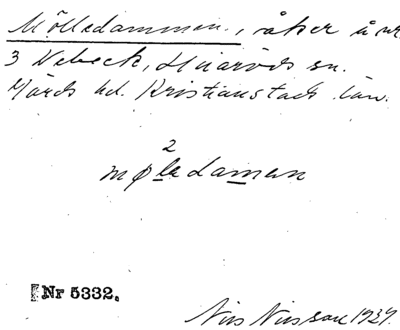 Mölledammen, åker å nr
3 Nebeck, Huaröds sn.
Gärds hd. Kristianstads län.
2
møledamen
Nr 5332.
Nils Nilsson 1929.